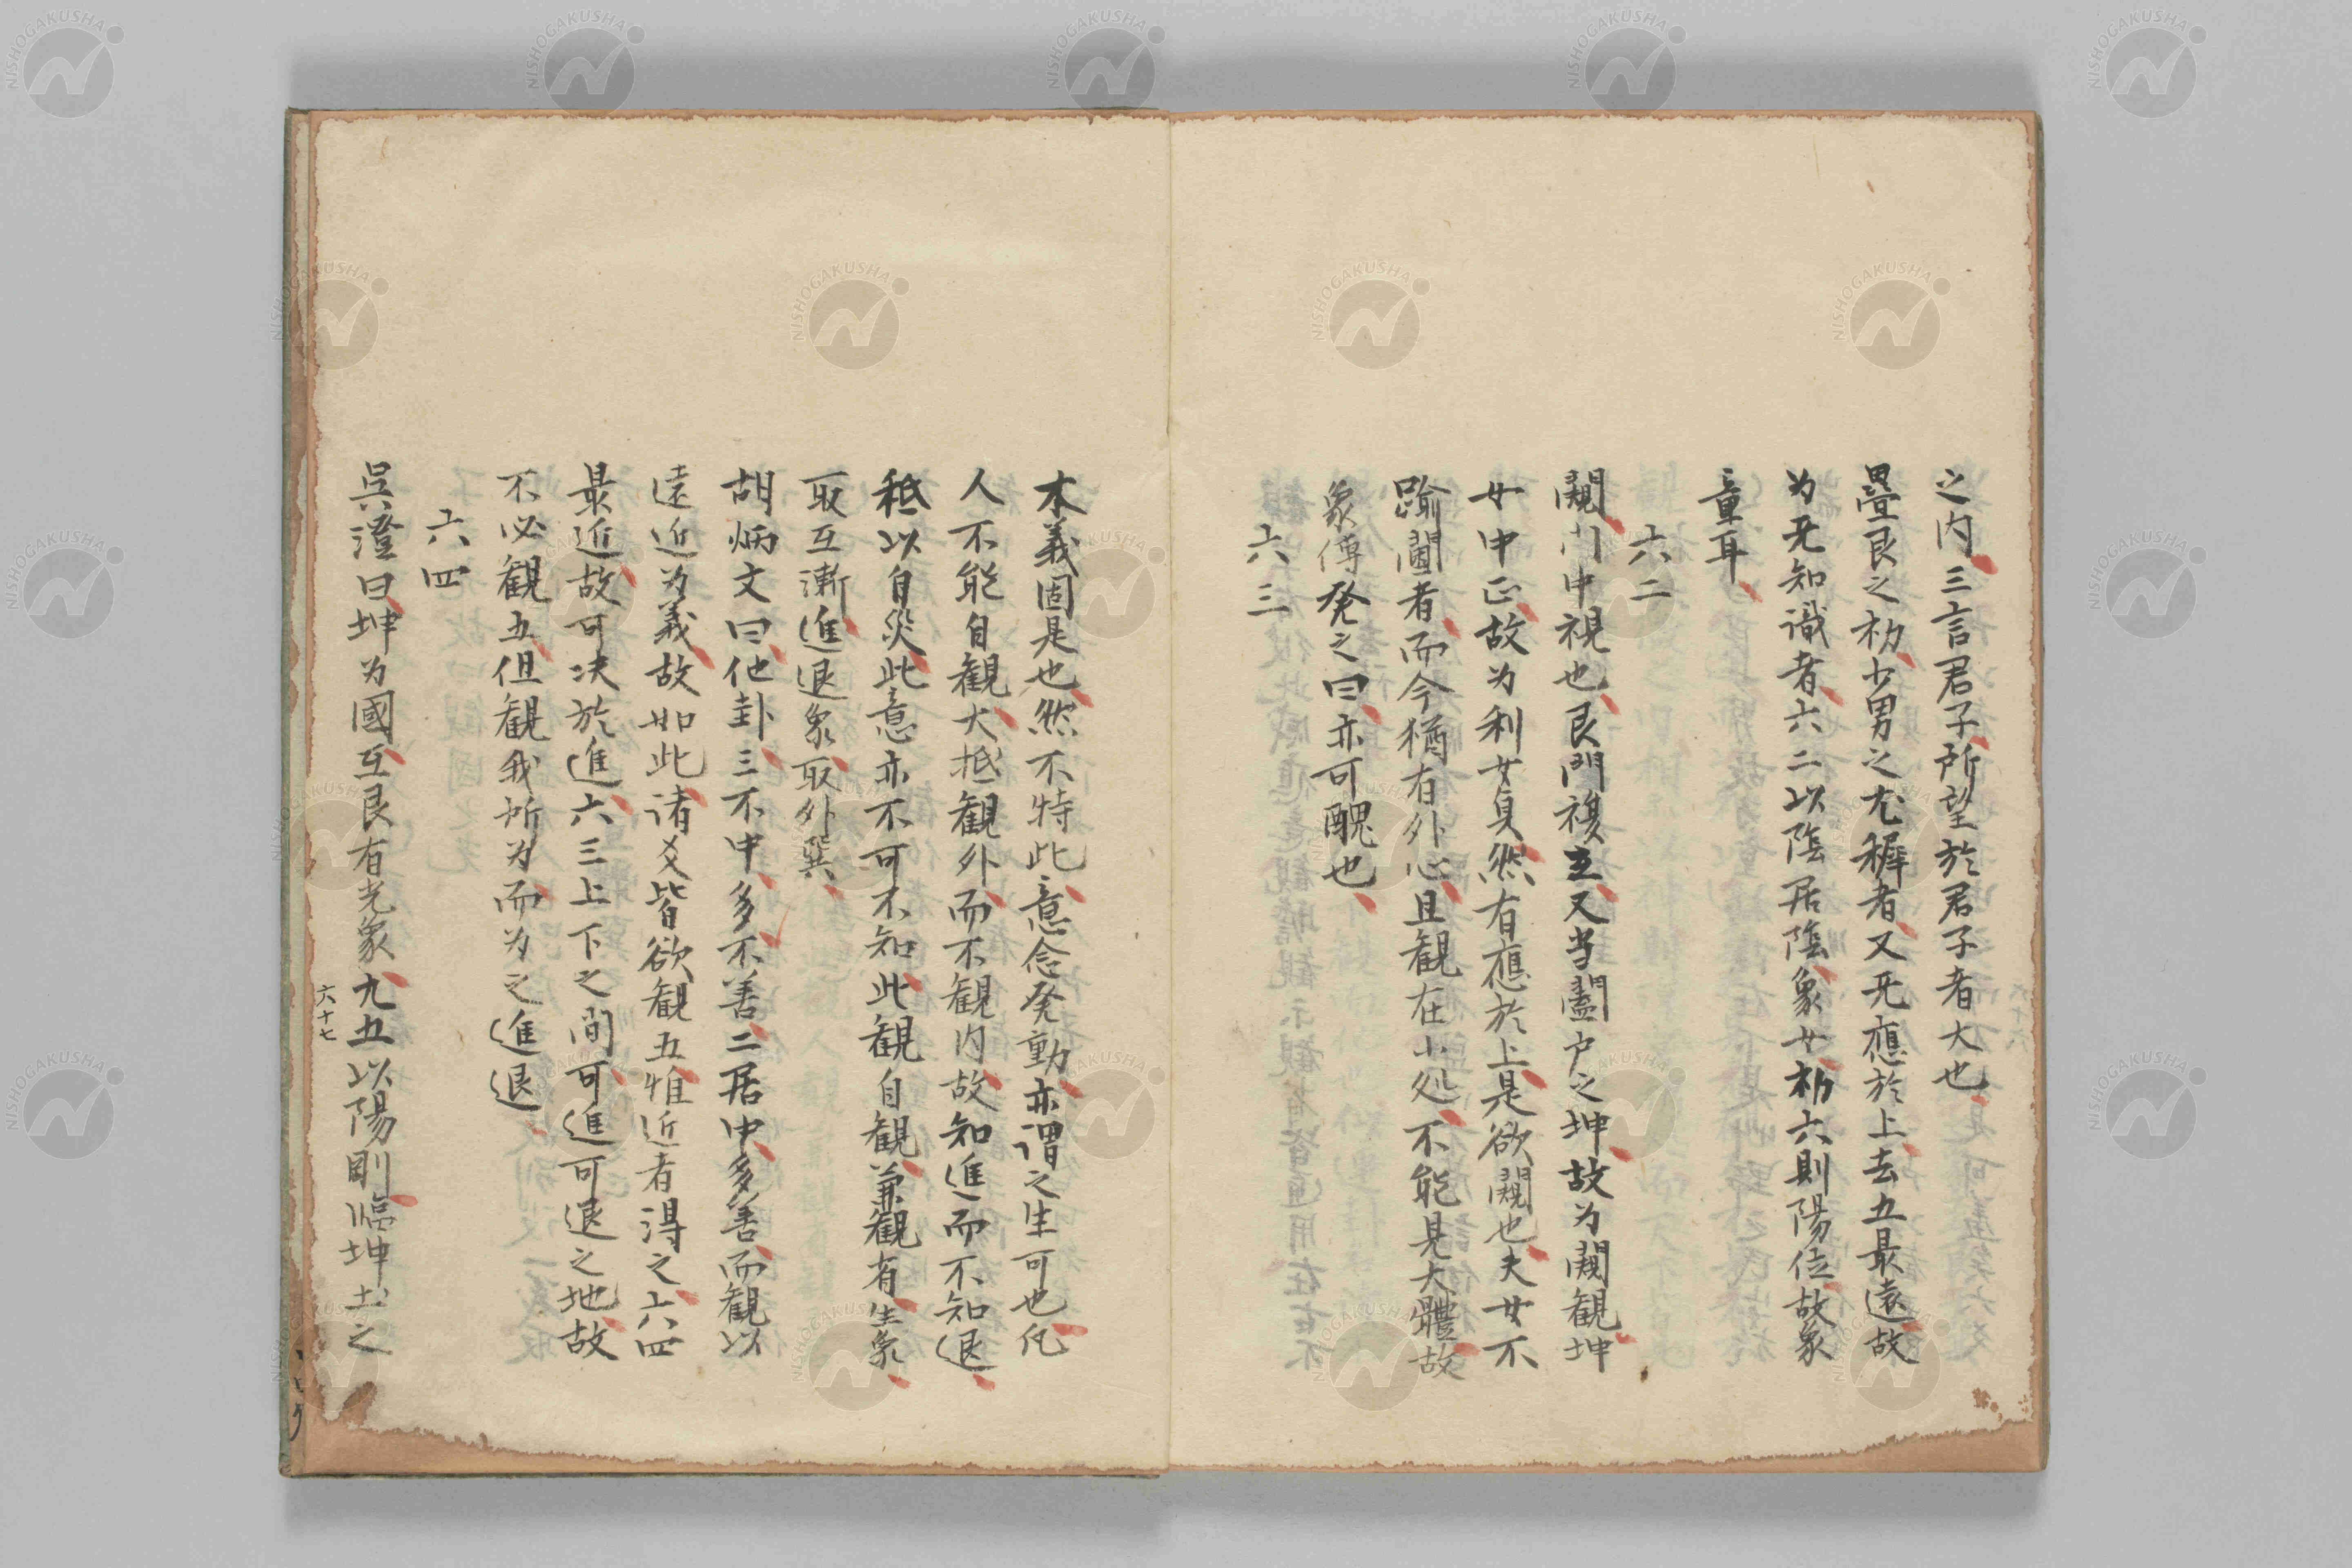 之内三言君子所望於君子者大也
疊艮之初少男之尤穉者又无應於上去五最遠故
为无知識者六二以陰居陰象女初六則陽位故象
童耳
六二
闚門中視也艮門複立又当闔户之坤故为闚観坤
女中正故为利女貞然有應於上是欲闚也夫女不
踰閫者而今猶有外心且観在小処不能見大體故
象傳発之曰亦可醜也
六三
本義固是也然不特此意念発動亦謂之生可也凡
人不能自観大抵観外而不観内故知進而不知退
秖以自災此意亦不可不知此観自観兼観有生象
取互漸進退象取外巽
胡炳文曰他卦三不中多不善二居中多善而観以
遠近为義故如此诸爻皆欲観五惟近者淂之六四
最近故可决於進六三上下之間可進可退之地故
不必観五但観我所为而为之進退
六四
吳澄曰坤为國互艮有光象九五以陽剛臨坤土之
六十七
NISHOGAKUSHA